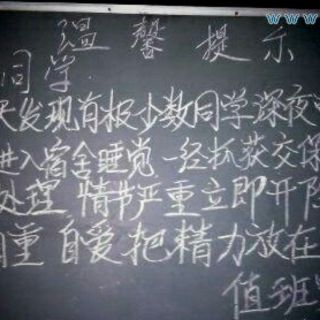 www
温馨提示
同学
天发现有极少数同学深夜
进入宿舍睡觉一经抓获交保
处理 情节严重立即开除
自重自爱把精力放在
值班室